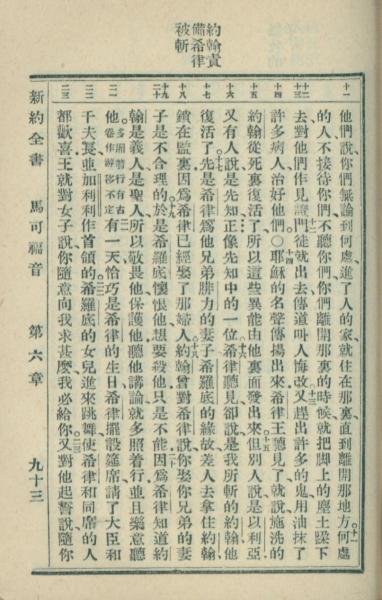 約翰責
備希律
被斬
十一
十二
十三
十四
十五
十六
十七
十八
十九
二十
二一
二二
二三
他們說你們無論到何處進了人的家就住在那裏直到離開那地方何處
的人不接待你們不聽你們你們離開那裏的時候就把脚上的塵土跺下
去對他們作見證門徒就出去傳道叫人悔改又趕出許多的鬼用油抹了
許多病人治好他們○耶穌的名聲傳揚出來希律王聽見了就說施洗的
約翰從死裏復活了所以這些異能由他裏面發出來但別人說是以利亞
又有人說是先知正像先知中的一位希律聽見卻說是我所斬的約翰他
復活了先是希律爲他兄弟腓力的妻子希羅底的緣故差人去拿住約翰
鎖在監裏因爲希律已經娶了那婦人約翰曾對希律說你娶你兄弟的妻
子是不合理的於是希羅底懷恨他想要殺他只是不能因爲希律知道約
翰是義人是聖人所以敬畏他保護他聽他講論就多照着行並且樂意聽
他多照着行有古卷作游移不定有一天恰巧是希律的生日希律擺設筵席請了大臣和
千夫長並加利利作首領的希羅底的女兒進來跳舞使希律和同席的人
都歡喜王就對女子說你隨意向我求甚麼我必給你又對他起誓說隨你
新約全書 馬可福音 第六章 九十三